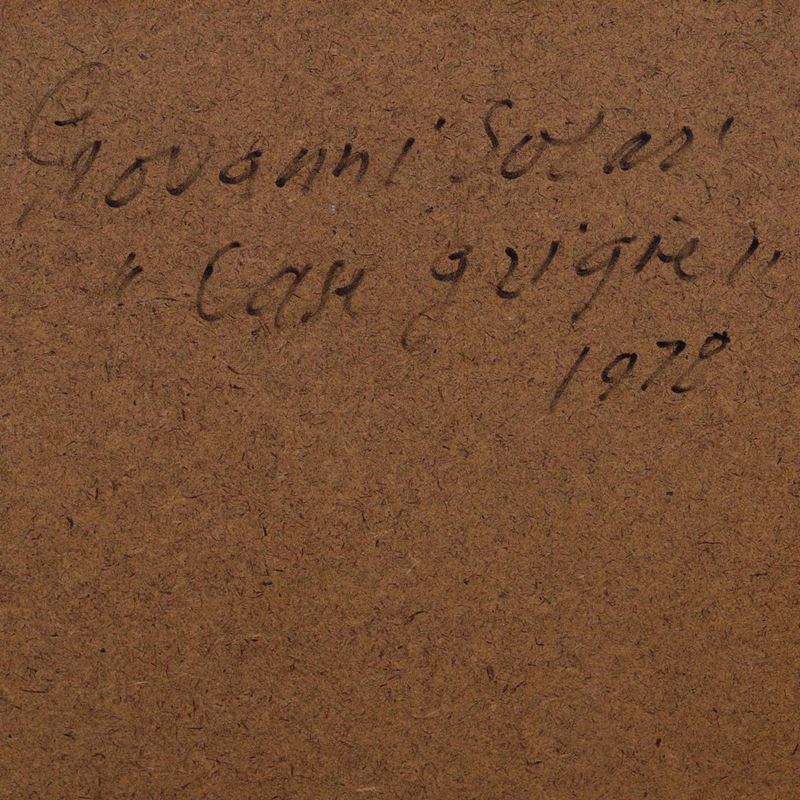 Giovanni Solari
" Case grigie "
1978